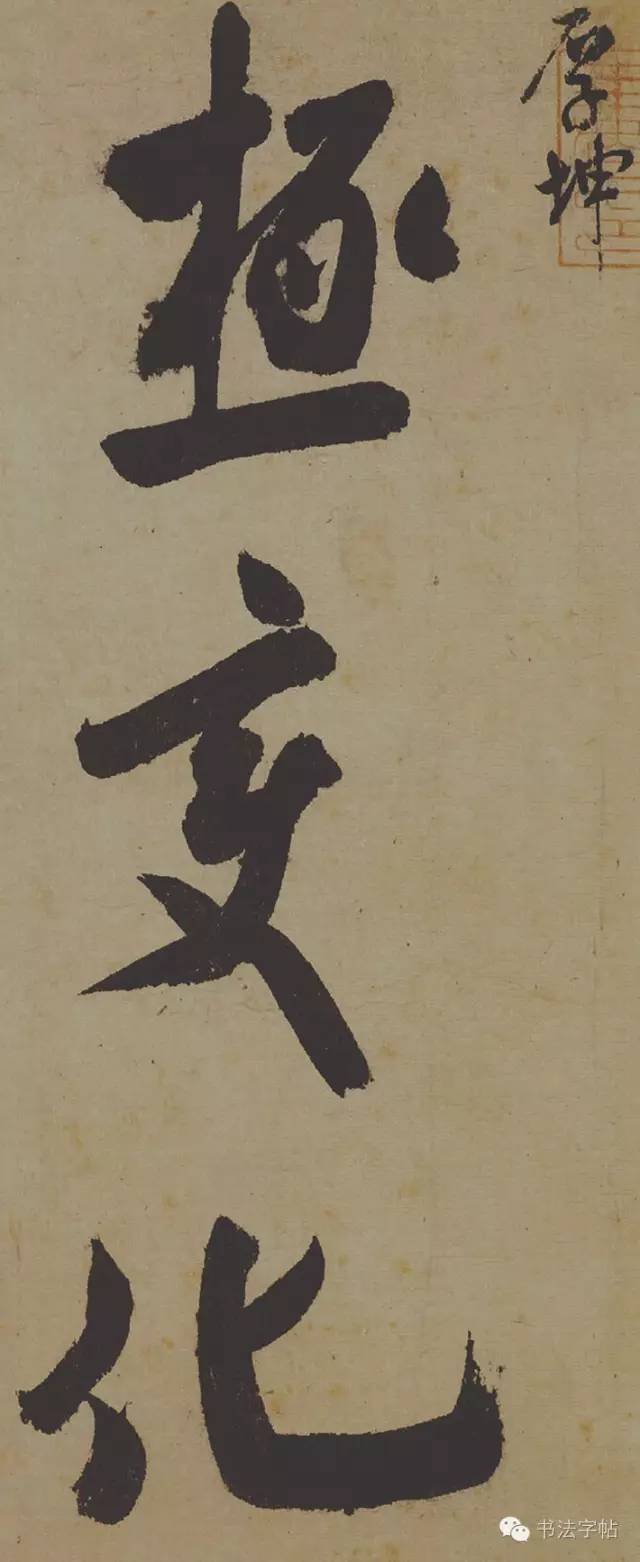 厚坤
極變化
书法字帖